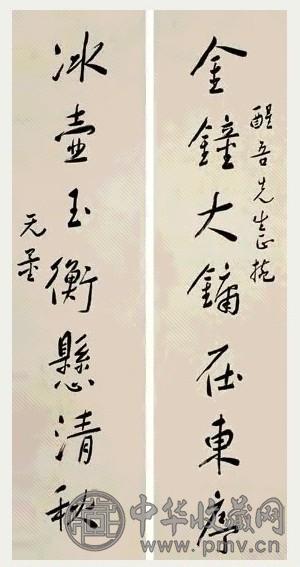 醒吾先生正㧞
金鐘大鏞在東序
冰壺玉衡懸清秋
无量
中华收藏网
www.pmv.cn